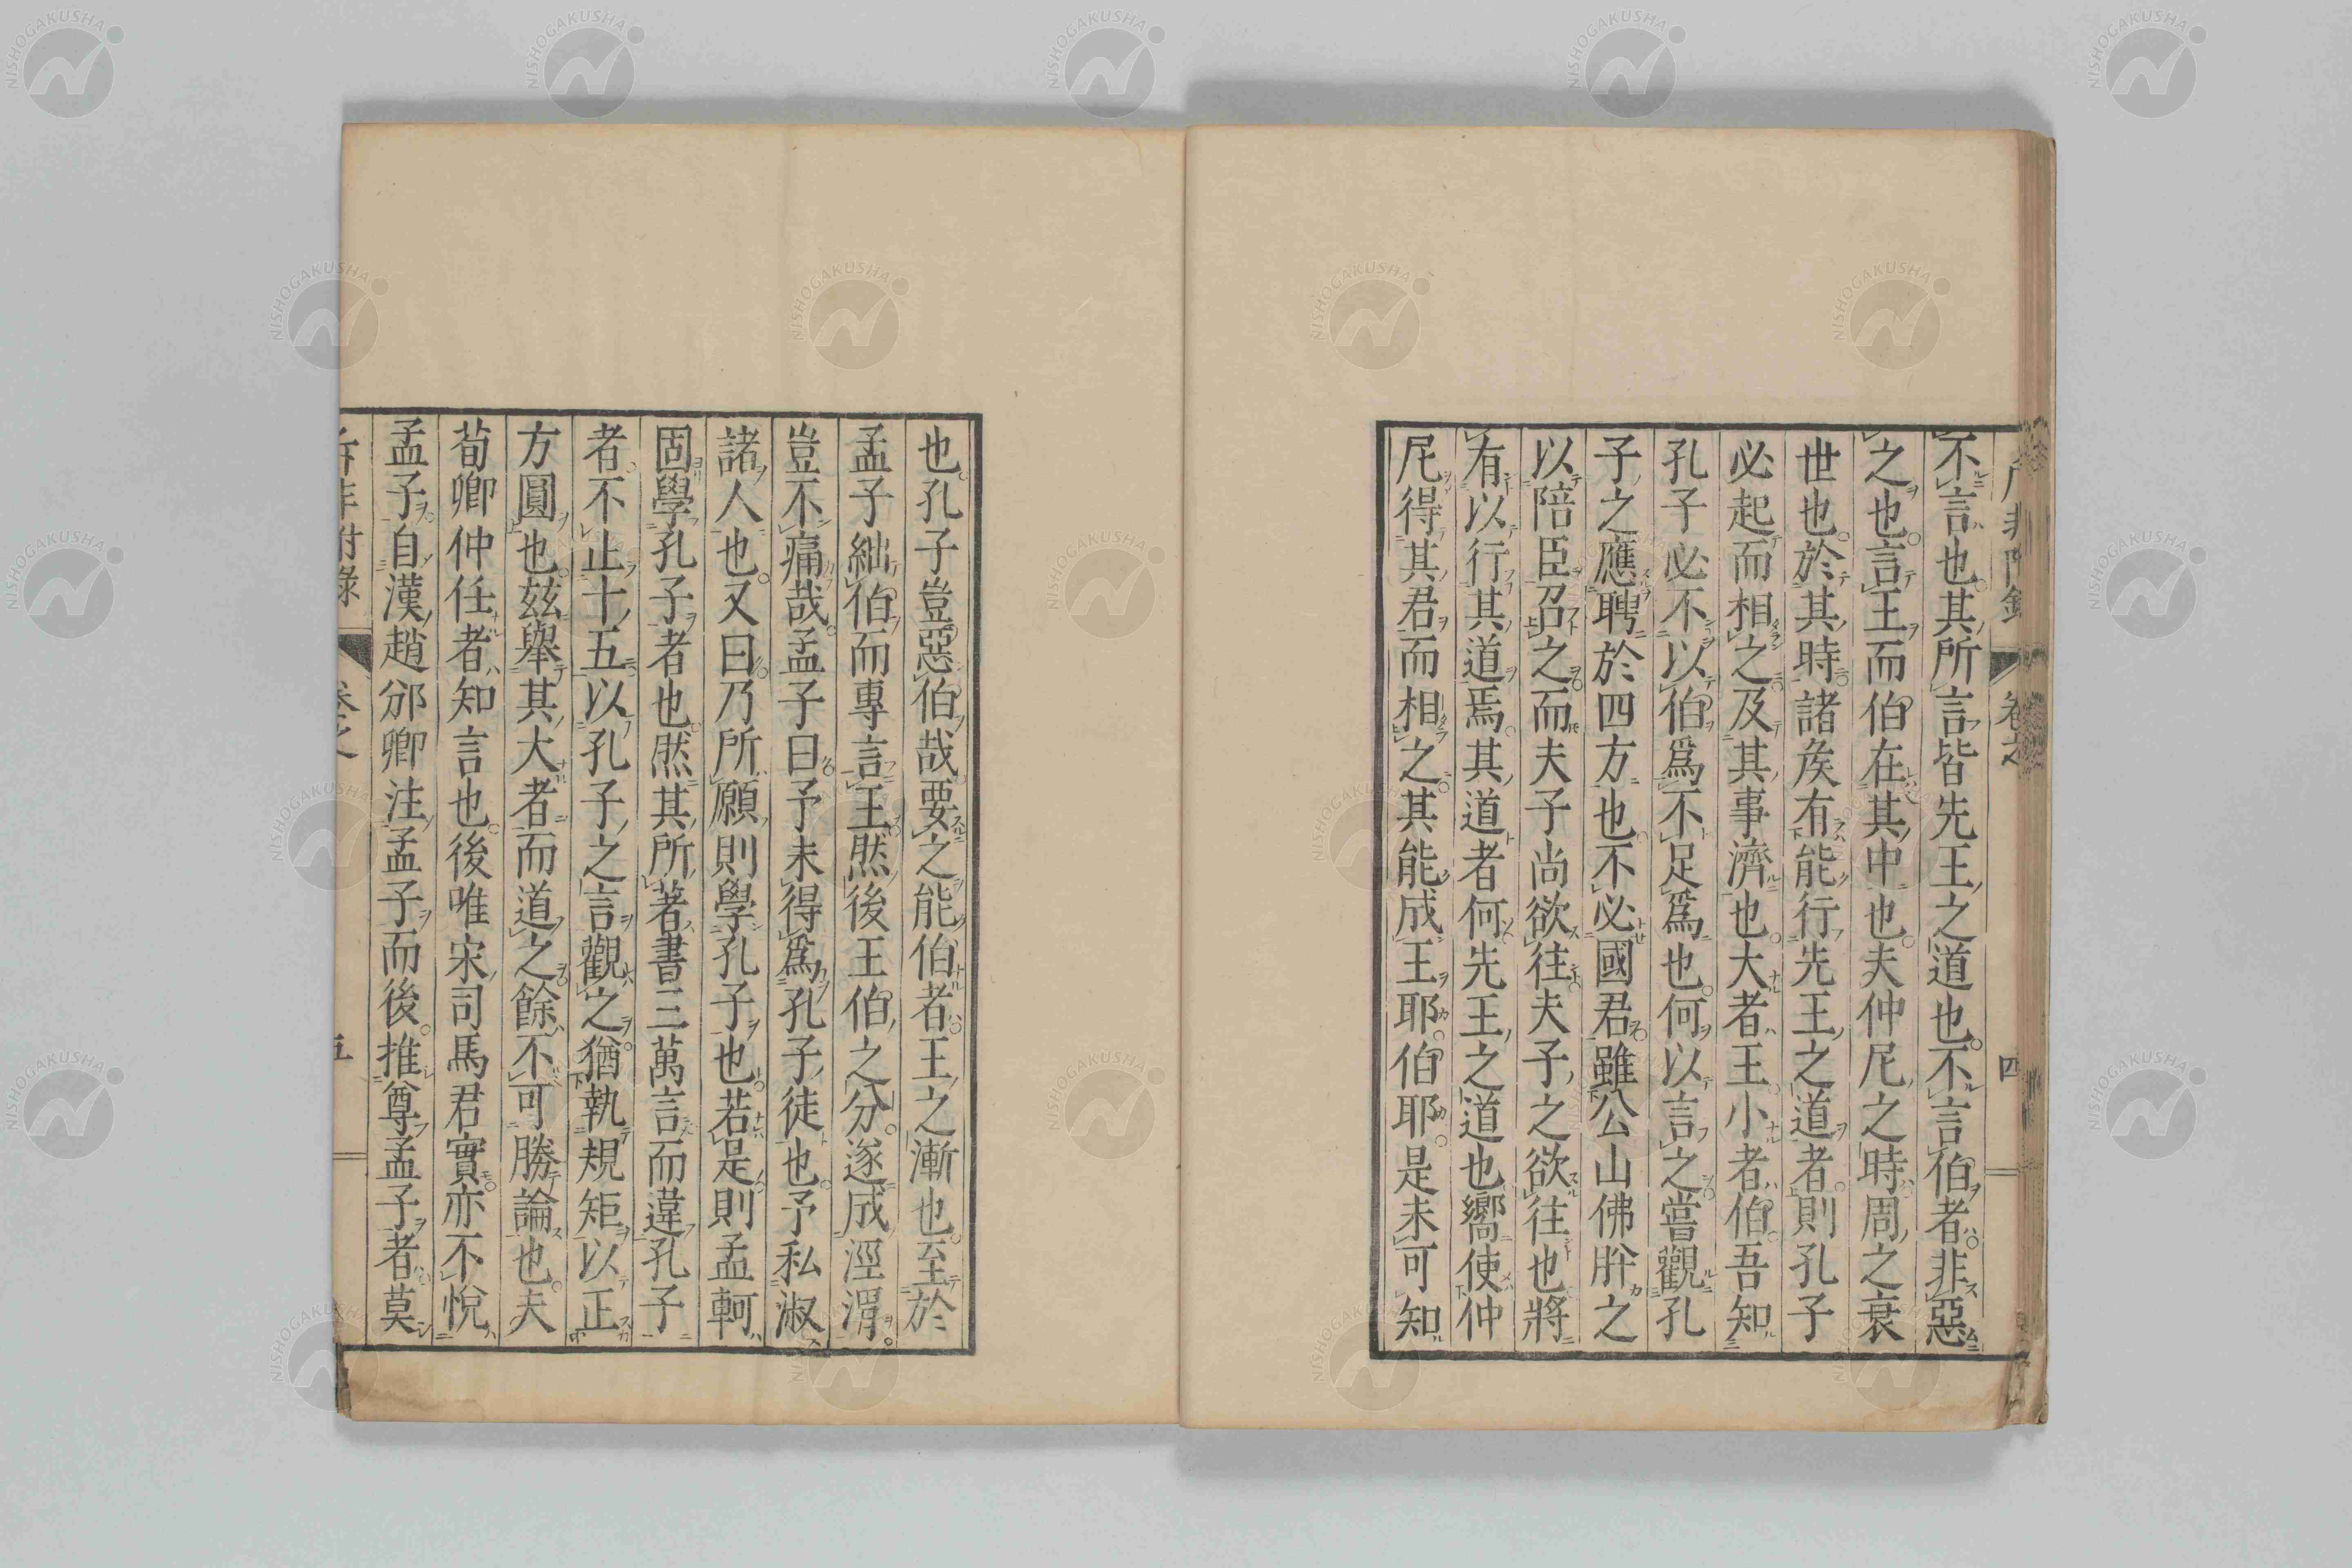 不言也其所言皆先王之道也不言伯者非惡
之也言王而伯在其中也夫仲尼之時周之衰
世也於其時諸矦有能行先王之道者則孔子
必起而相之及其事濟也大者王小者伯吾知
孔子必不以伯爲不足爲也何以言之嘗觀孔
子之應聘於四方也不必國君雖公山佛肸之
以陪臣召之而夫子尚欲往夫子之欲往也將
有以行其道焉其道者何先王之道也嚮使仲
尼得其君而相之其能成王耶伯耶是未可知
也孔子豈惡伯哉要之能伯者王之漸也至於
孟子絀伯而專言王然後王伯之分遂成涇渭
豈不痛哉孟子曰予未得爲孔子徒也予私淑
諸人也又曰乃所願則學孔子也若是則孟軻
固學孔子者也然其所著書三萬言而違孔子
者不止十五以孔子之言觀之猶執規矩以正
方圓也玆舉其大者而道之餘不可勝論也夫
荀卿仲任者知言也後唯宋司馬君實亦不悅
孟子自漢趙邠卿注孟子而後推尊孟子者莫
五
NISHOGAKUSHA